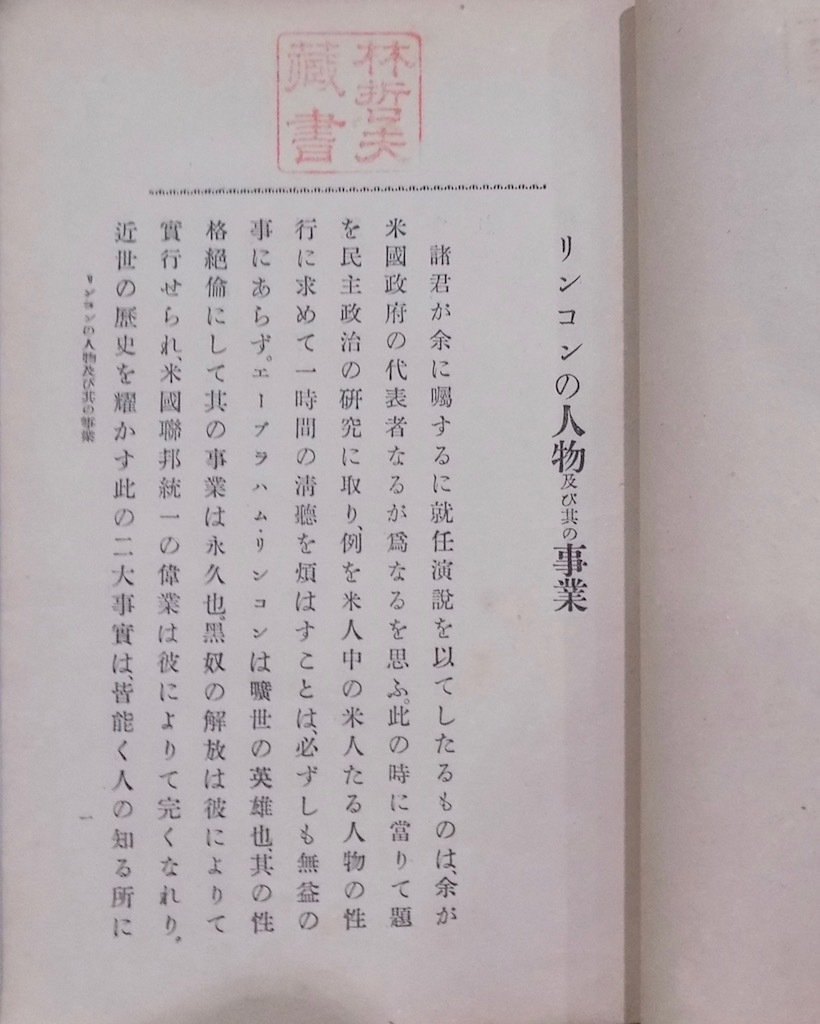 林哲夫
藏書
リンコンの人物及び其の事業
諸君が余に囑するに就任演說を以てしたるものは、余が
米國政府の代表者なるが爲なるを思ふ。此の時に當りて題
を民主政治の硏究に取り、例を米人中の米人たる人物の性
行に求めて一時間の淸聽を煩はすことは、必ずしも無益の
事にあらず。エーブラハム・リンコンは曠世の英雄也、其の性
格絕倫にして其の事業は永久也。黑奴の解放は彼によりて
實行せられ、米國聯邦統一の偉業は彼によりて完くなれり。
近世の歷史を耀かす此の二大事實は、皆能く人の知る所に
リンコンの人物及び其の事業
一